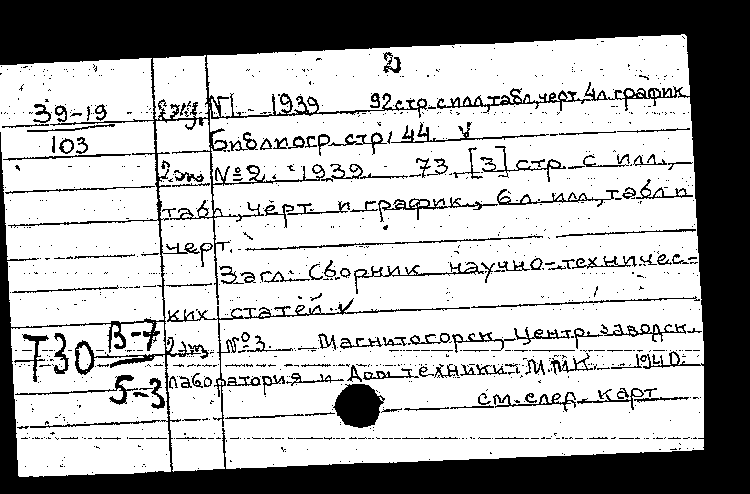 2)
39-19
103
2 экз. №1. 1939 92 стр. с илл., табл., черт., 4 л. график
Библиогр. стр. 44. V
2 экз №2. 1939. 73, [3] стр. с илл.,
табл., черт. и график., 6 л. илл., табл и
черт.
Загл: Сборник научно-техничес-
ких статей. V
Т30 В-7
5-3
2 экз №3. Магнитогорск, Центр. заводск.
лаборатория и Дом техники ММК. 1940.
см. след. карт